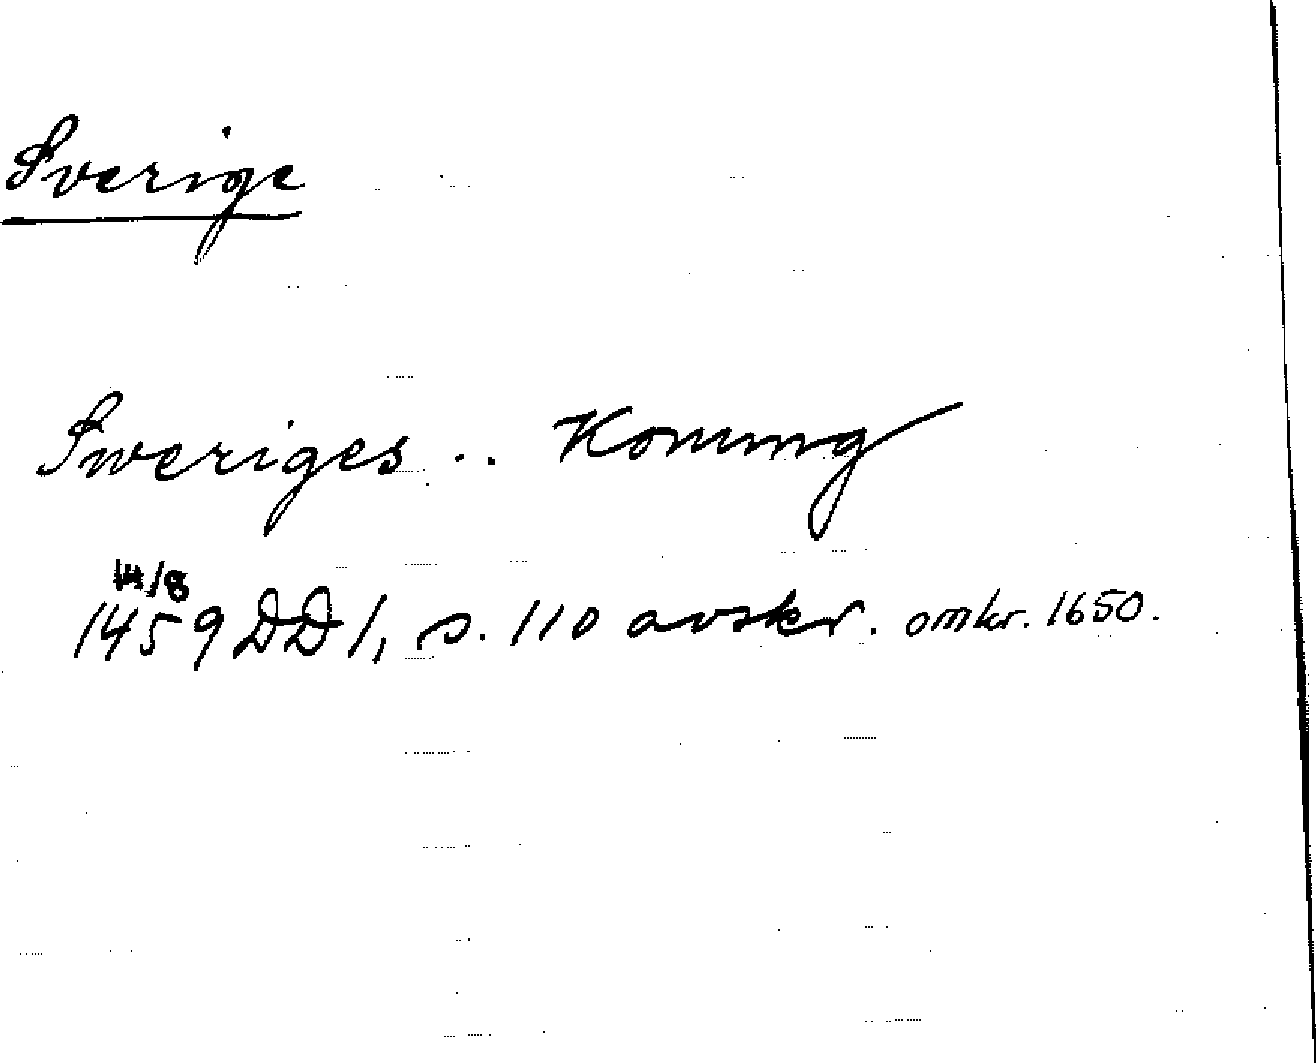 Sverige
Sweriges .. Konung
14/8
1459 DD 1, s. 110 avskr. omkr. 1650.